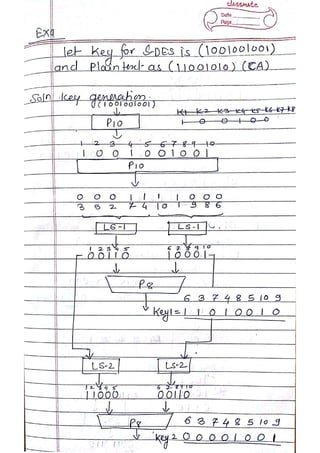 classmate
Date
Page
Exa
let key for SDES is (1001001001)
and Plaintext as (11001010) (CA)
Soln key generation.
(1001001001)
K1 K2 K3 K4 K5 K6 K7 K8
1 0 0 1 0 0
P10
1 2 3 4 5 6 7 8 9 10
1 0 0 1 0 0 1 0 0 1
P10
0 0 0 1 1 1 1 0 0 0
3 5 2 7 4 10 1 9 8 6
LS-1 LS-1
1 2 3 4 5 6 7 8 9 10
00110 10001
P8
6 3 7 4 8 5 10 9
Key1 = 1 1 0 1 0 0 1 0
LS-2 LS-2
1 2 3 4 5 6 7 8 9 10
11000 00110
P8
6 3 7 4 8 5 10 9
Key 2 0 0 0 0 1 0 0 1